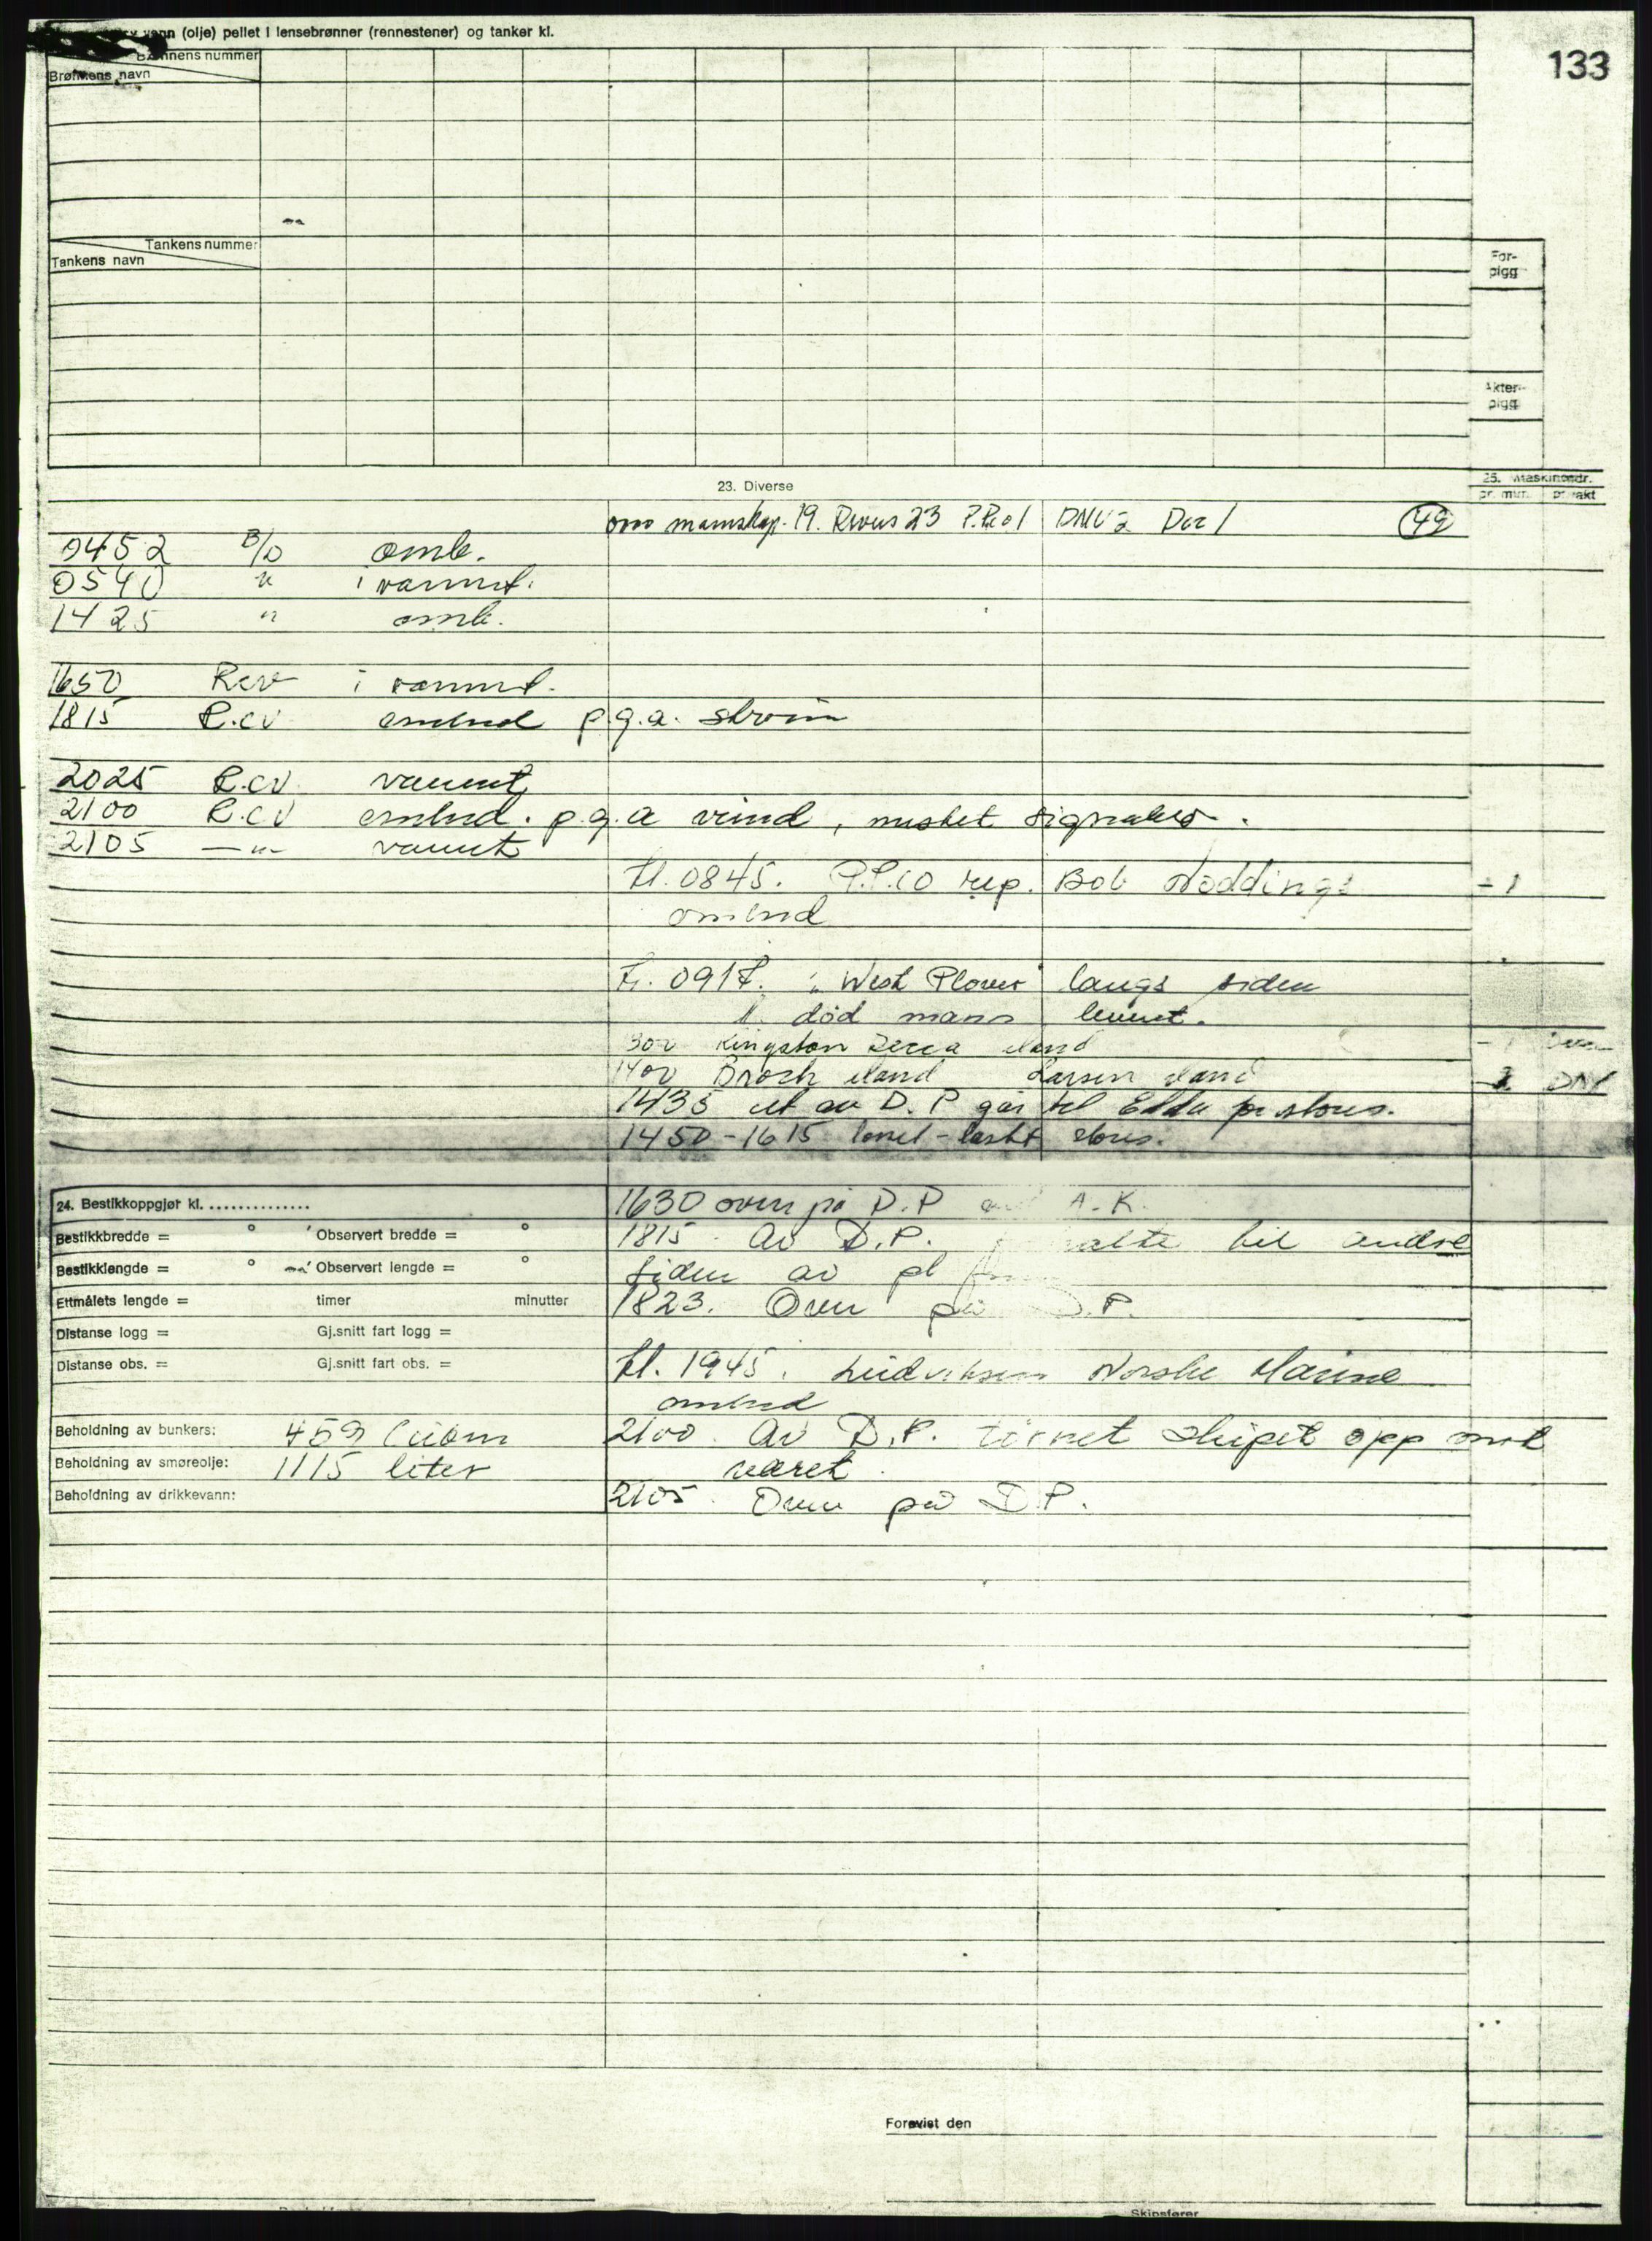 vann (olje) peilet i lensebrønner (rennestener) og tanker kl.
133
Brønnens nummer
Brønnens navn
Tankens nummer
Tankens navn
For-
pigg
Akter-
pigg
23. Diverse
25. Maskinomdr.
pr. min. pr vakt
mannskap. 19. 23 1 DNV 2 1 49
0452 B/D omb.
0540 " i vannet.
1425 " omb.
1650 Rcv i vannet.
1815 R.cv ombord p.g.a. strøm
2025 R.cv vannet
2100 R.cv ombord. p.g.a vind, mistet signaler.
2105 — " — vannet
kl. 0845. P.P.CO rep. Bob Noddings - 1
ombrd
"West Plover" langs siden
1 død mann levert.
Kingston Decca iland
1400 Broch iland Larsen iland DNV
1435 ut av D.P går til Edda for stores.
1450-1615 stores.
24. Bestikkoppgjør kl. ..............
1630 over på D.P A.K.
Bestikkbredde = ° ' Observert bredde = °
1815. Av D.P. til andre
Bestikklengde = ° ' Observert lengde = °
siden av
Ettmålets lengde = timer minutter
1823. Over på D.P.
Distanse logg = Gj.snitt fart logg =
Distanse obs. = Gj.snitt fart obs. =
kl. 1945. Norske Marine
ombrd
Beholdning av bunkers: 459 Cubm
2100. Av D.P. tørnet skipet opp mot
Beholdning av smøreolje: 1115 liter
været.
Beholdning av drikkevann:
2105. Over på D.P.
Forevist den
Skipsfører